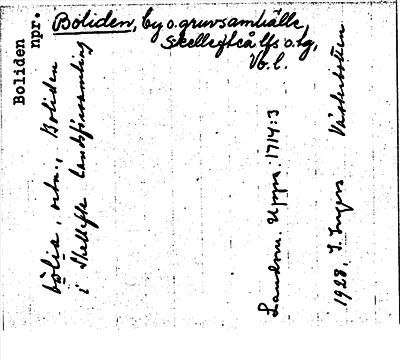 Boliden
npr.
Boliden, by o. gruvsamhälle,
Skellefteå lfs o. tg,
Vb. l.
i Skellefte landsförsamling
Landsm. Upps. 1714:3
1928, I. Ingers Västerbotten